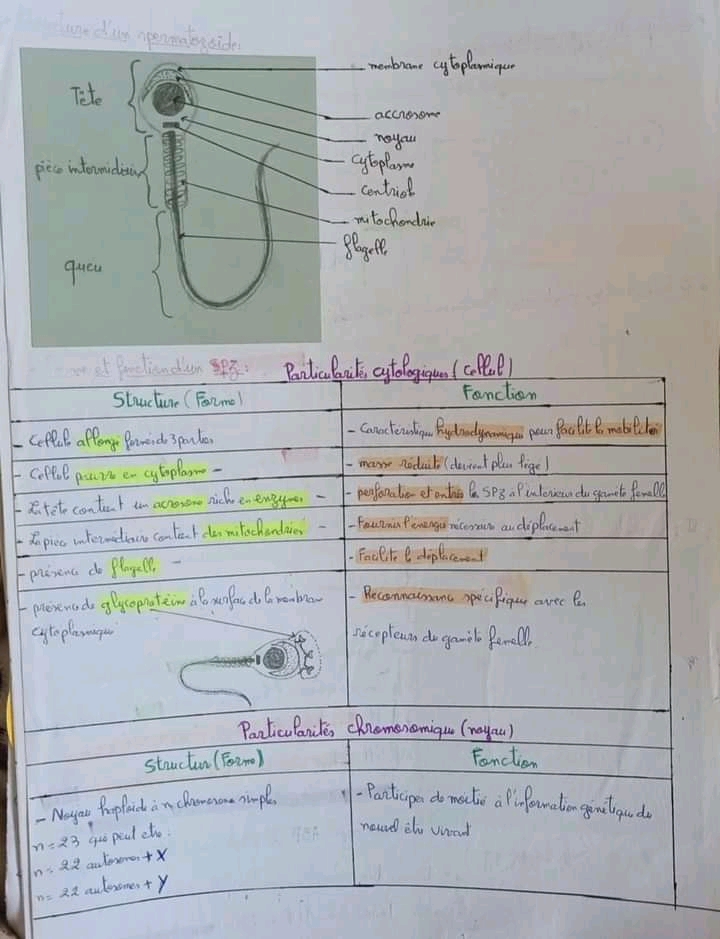 d'un spermatozoïde:
membrane cytoplasmique
Tête
accrosome
noyau
cytoplasme
pièce intermidiair
centriol
mitochondrie
flagelle
queu
et fonction d'un SPZ: Particularités cytologiques (Cellul)
Structure (Forme) Fonction
- Cellule allongé formés de 3 parties - Caractéristique hydrodynamique pour facilité la mobilité
- Cellul pauvre en cytoplasme - - masse réduite (devient plus lége)
- La tête contient un acrosome riche en enzymes - - perforation et entrée le SPZ à l'intérieur du gamète femelle
- La pièce intermédiaire contient des mitochondries - - Fournis l'énergie nécessaire au déplacement
- présence de flagelle - - Facilite le déplacement
- présence de glycoprotéine à la surface de la membran - Reconnaissance spécifique avec les
cytoplasmique récepteurs du gamète femelle
Particularités chromosomique (noyau)
Structur (Forme) Fonction
- Noyau haploïde à n chromosome simples - Participer de moitié à l'information génétique du
n = 23 qui peut etre : nouvel être vivant
n = 22 autosomes + X
n = 22 autosomes + Y